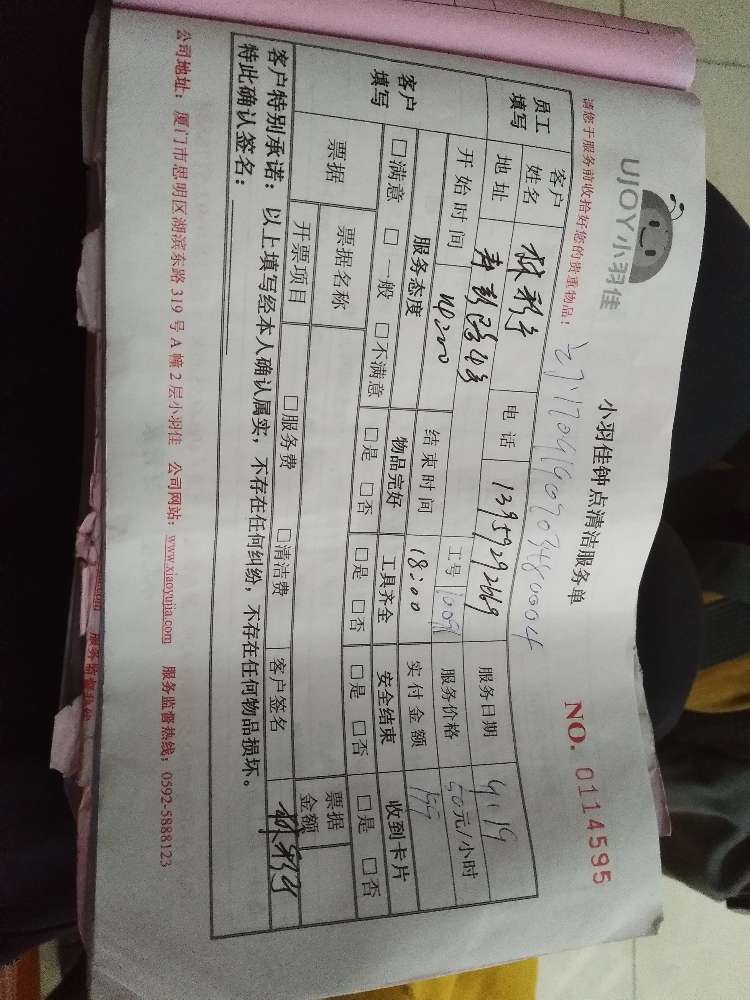 UJOY小羽佳
小羽佳钟点清洁服务单
NO. 0114595
请您于服务前收拾好您的贵重物品!
员工填写
客户姓名 林 电话 服务日期 4.19
地址 工号 服务价格 50元/小时
开始时间 14:00 结束时间 18:00 实付金额
客户填写
服务态度 物品完好 工具齐全 安全结束 收到卡片
□满意 □一般 □不满意 □是 □否 □是 □否 □是 □否 □是 □否
票据 票据名称 □服务费 □清洁费 票据金额
开票项目 客户签名 林
客户特别承诺:以上填写经本人确认属实,不存在任何纠纷,不存在任何物品损坏。
特此确认签名:
公司地址:厦门市思明区湖滨东路 319 号 A 幢 2 层小羽佳 公司网站:www.xiaoyujia.com 服务监督热线:0592-5888123